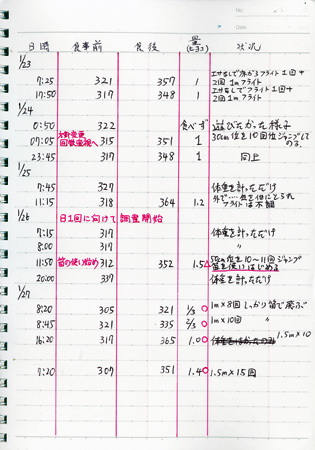 No.
日時 食事前 食後 量(ヒヨコ) 状況
1/23
7:25 321 357 1 エサなしで床からフライト1回+2回1mフライト
17:50 317 348 1 エサなしでフライト1回+2回1mフライト
1/24
0:50 322 食べず 遊びたかった様子
大幅変更回数重視へ
07:05 315 351 1 30cm位を10回位ジャンプしてのる。
23:45 317 348 1 同上
1/25
7:45 327 体重を計っただけ
11:15 318 364 1.2 外で…気を他にとられフライトは不調
1/26 日1回に向けて調整開始
7:15 317 体重を計っただけ
8:00 317 〃
11:50 笛の使い始め 312 352 1.5△ 50cm位を10〜11回ジャンプ笛を使いはじめる
20:00 337 体重を計っただけ
1/27
8:20 305 321 1/3○ 1m×8回 しっかり笛で飛ぶ
8:45 321 335 2/3○ 1m×10回 〃
16:20 317 365 1.0○ 1.5m×10
7:20 307 351 1.4○ 1.5m×15回